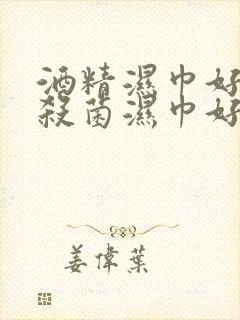 酒精濕巾好
殺菌濕巾好
姜偉葉